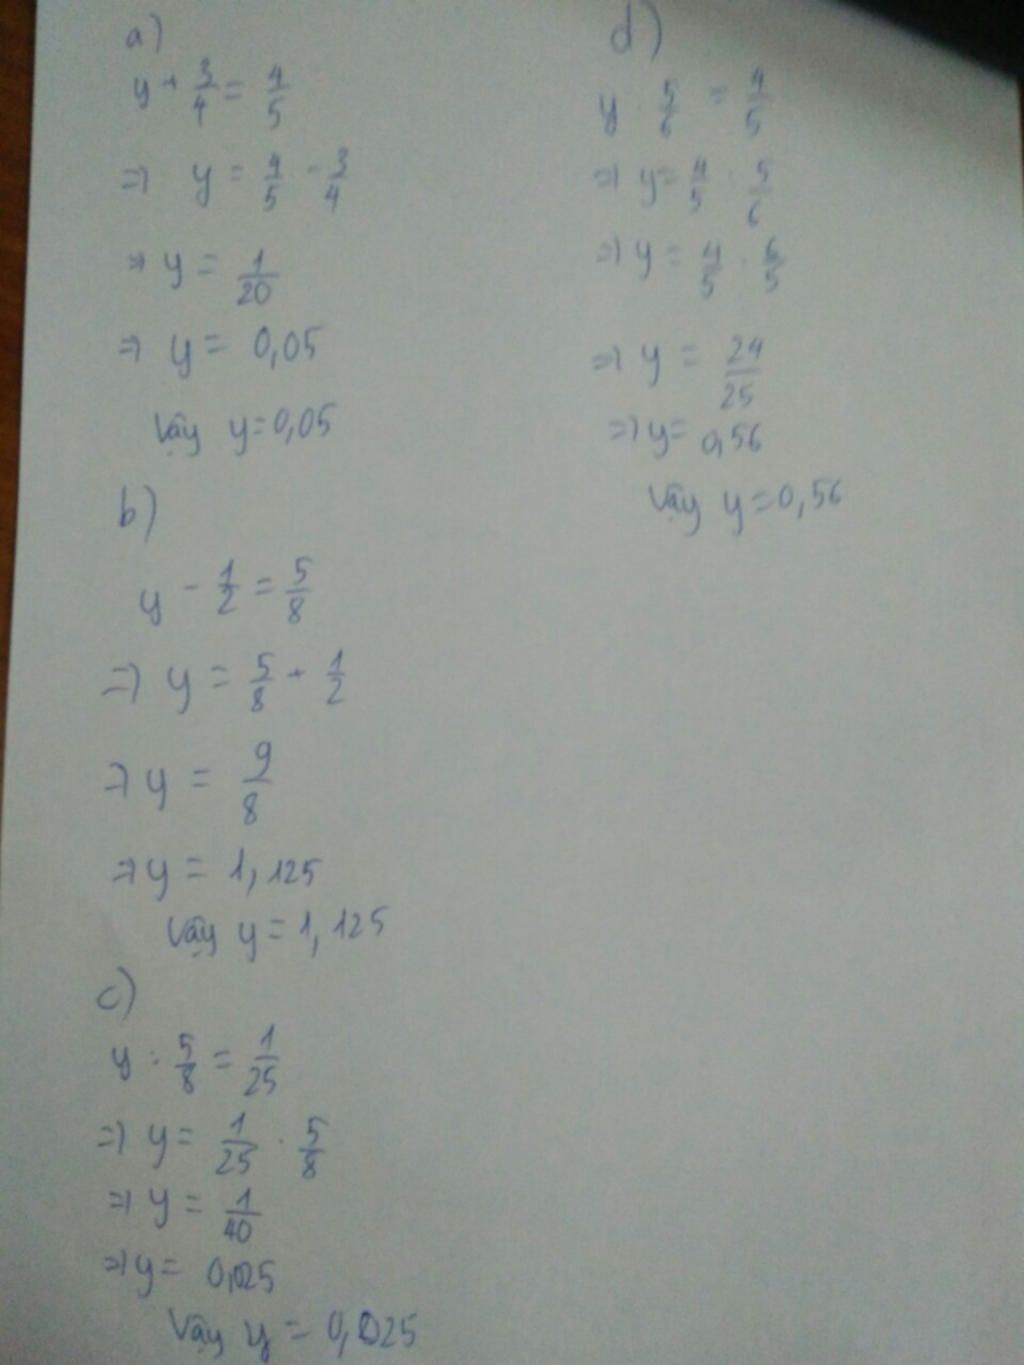 a)
y + 3/4 = 4/5
=> y = 4/5 - 3/4
=> y = 1/20
=> y = 0,05
Vậy y = 0,05
b)
y - 1/2 = 5/8
=> y = 5/8 + 1/2
=> y = 9/8
=> y = 1,125
Vậy y = 1,125
c)
y : 5/8 = 1/25
=> y = 1/25 . 5/8
=> y = 1/40
=> y = 0,025
Vậy y = 0,025
d)
y . 5/6 = 4/5
=> y = 4/5 : 5/6
=> y = 4/5 . 6/5
=> y = 24/25
=> y = 0,56
Vậy y = 0,56